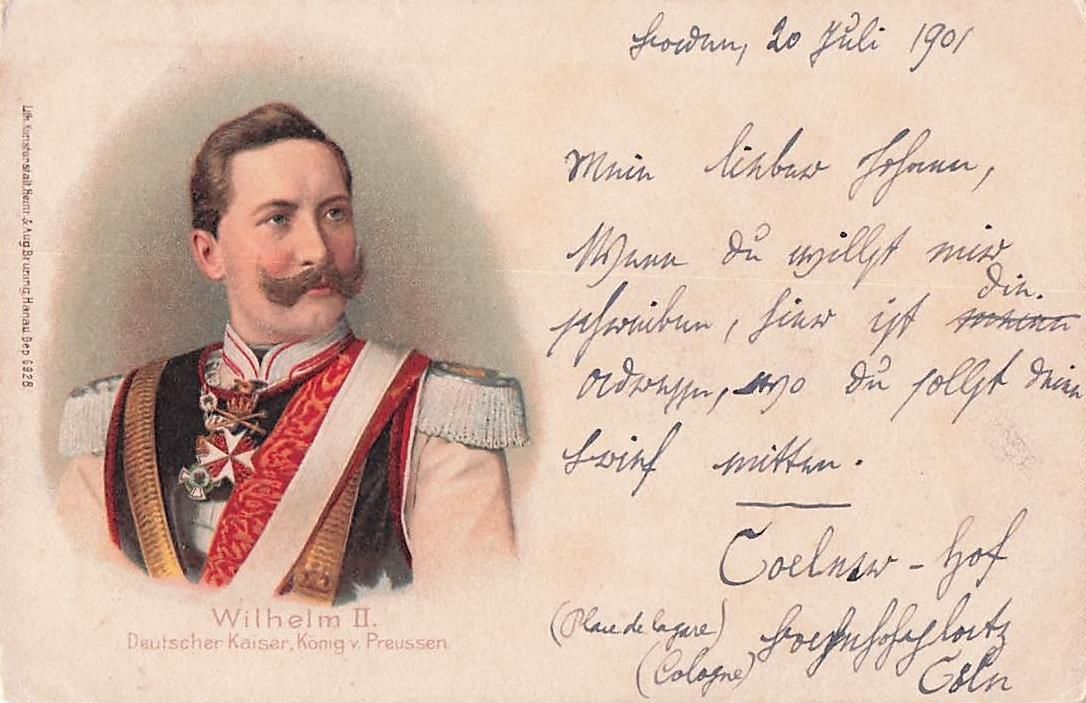 20 Juli 1901
Mein lieber Johann,
Wenn du willst mir
die.
schreiben, hier ist meine
Adresse, wo du sollst deine
Brief mitten.
Coelner-Hof
(Place de la gare) Bahnhofsplatz
(Cologne) Cöln
Lith. Kunstanstalt, Heinr. & Aug. Brüning, Hanau Dep 6928
Wilhelm II.
Deutscher Kaiser, König v. Preussen.